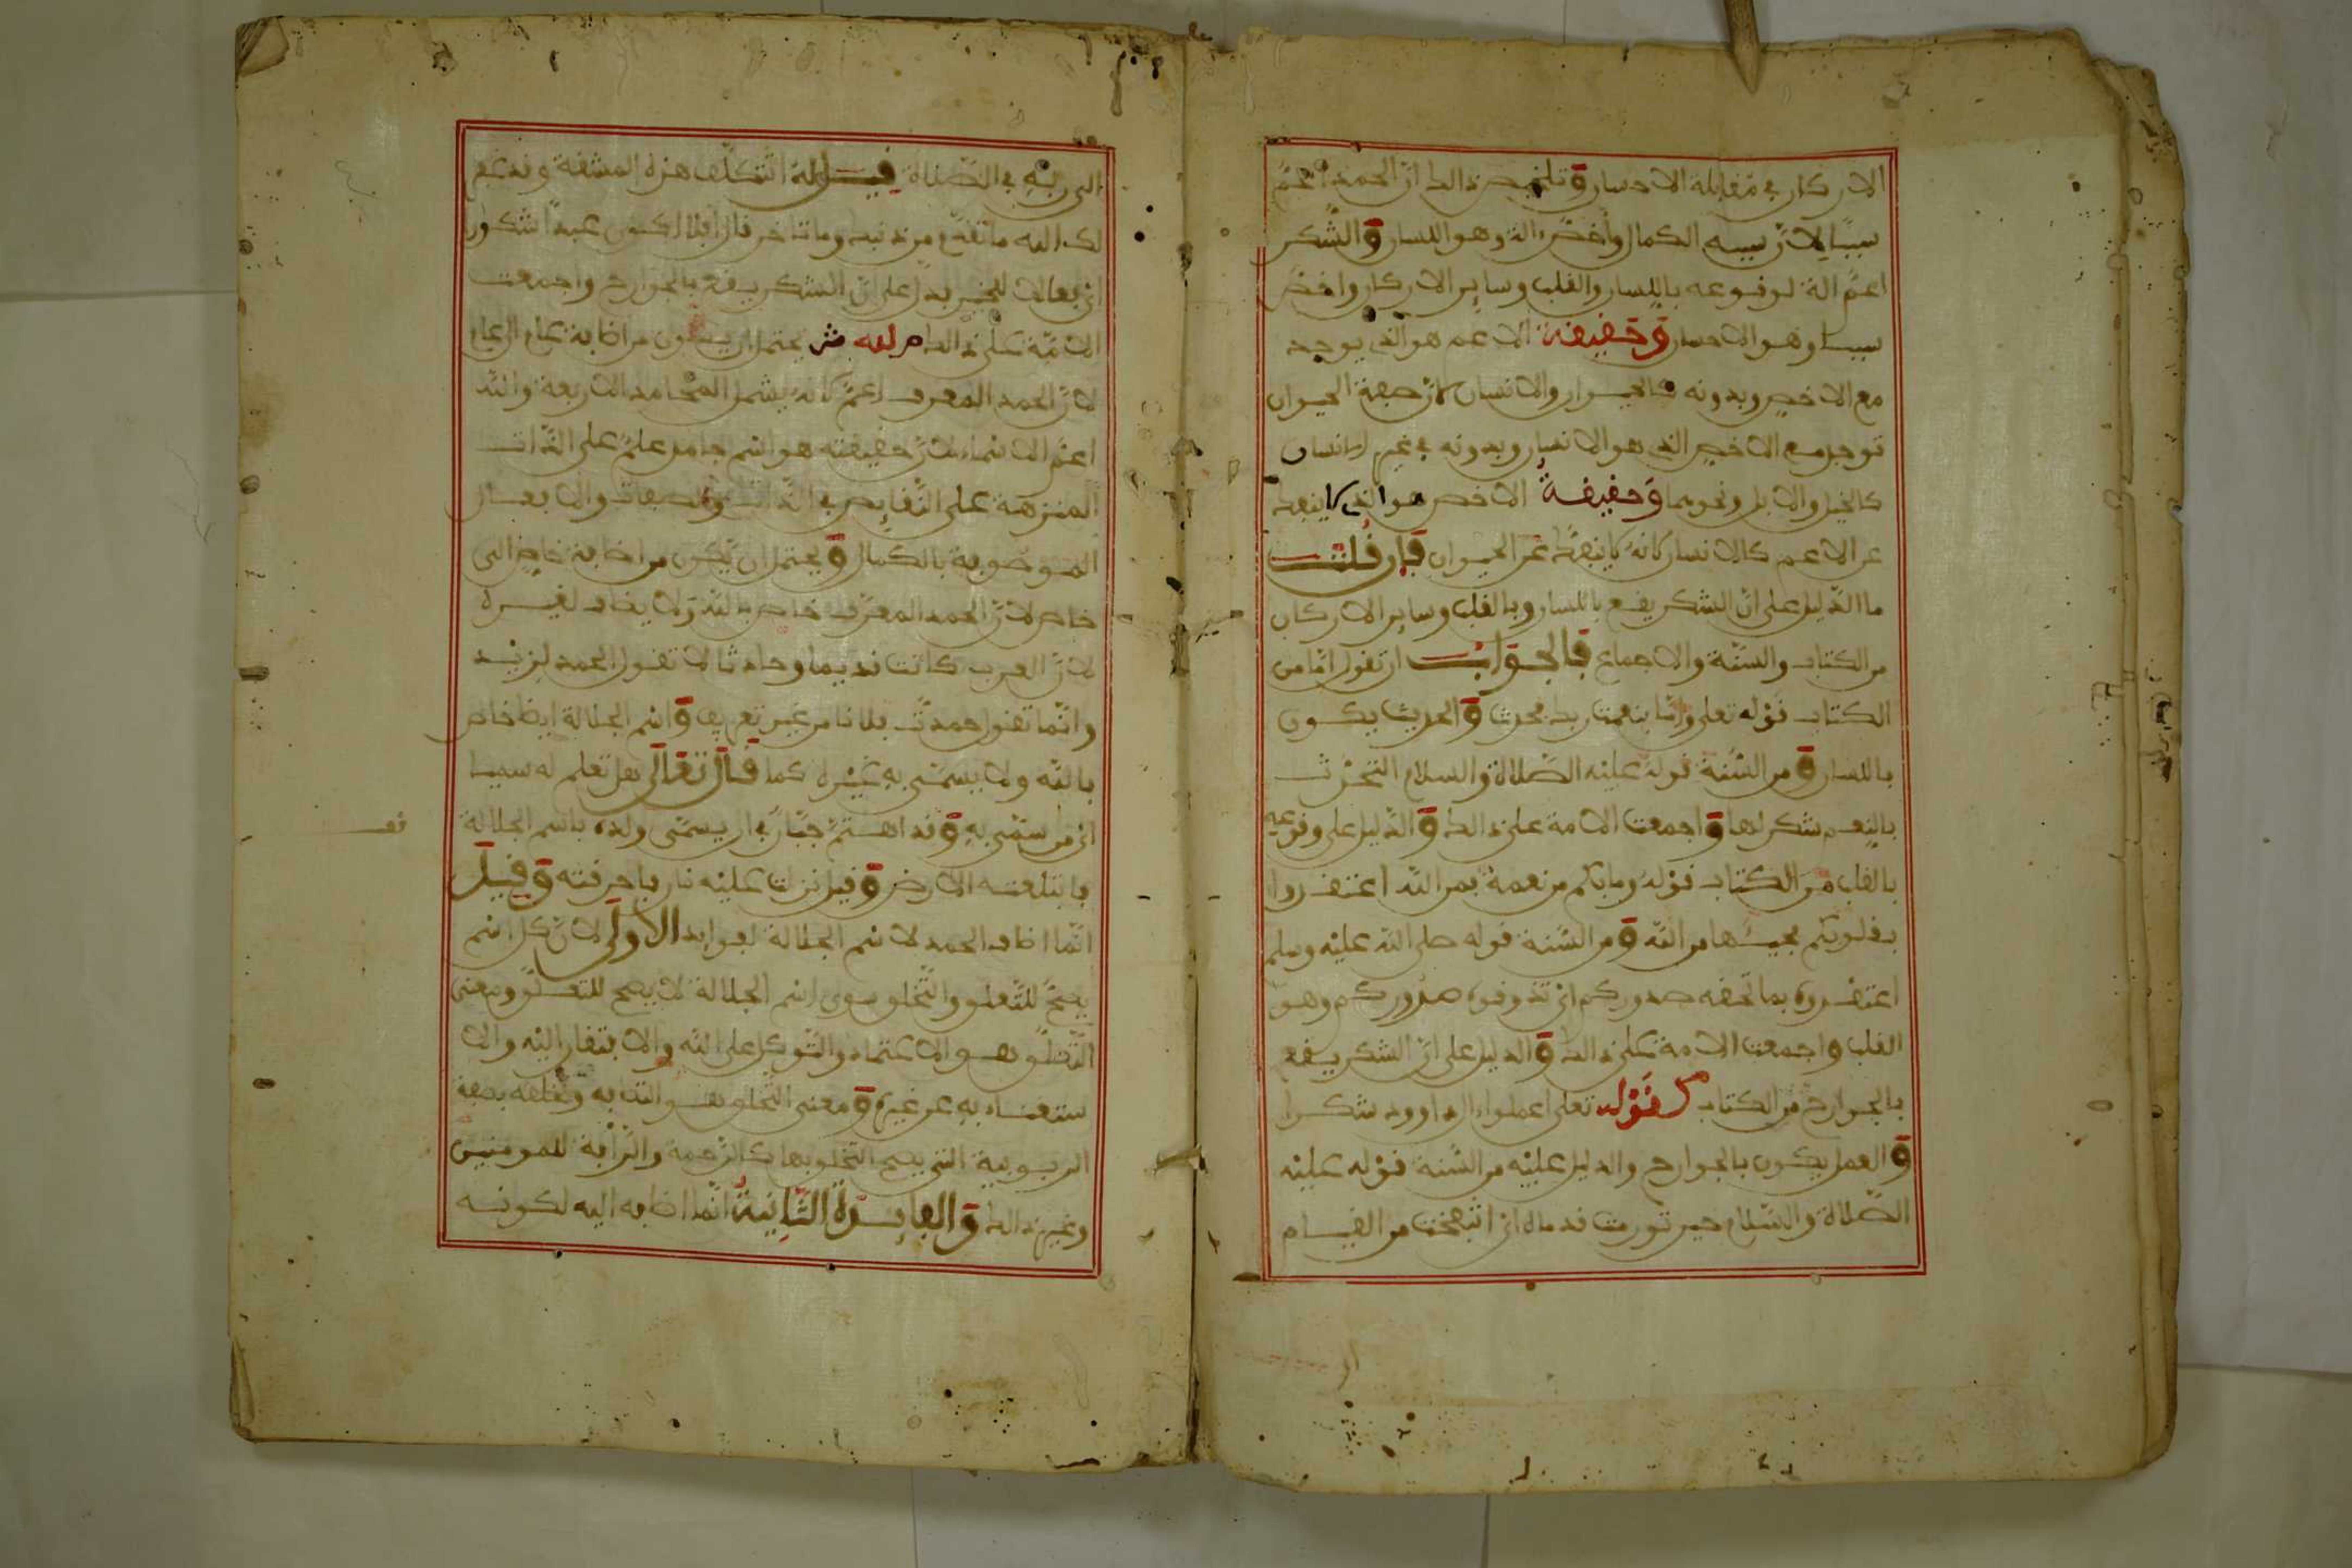 الاركان في مقابلة الاحسان وتلخيص ذالك ان الحمد اعمّ
سببًا لانّ سببه الكمال وأخصّ الة وهو اللسان والشّكر
اعمّ الة لوقوعه باللسان والقلب وساير الاركان واخصّ
سببا وهو الاحسان وحقيقة الاعم هو الذي يوجد
مع الاخص وبدونه كالحيوان والانسان لانّ صفة الحيوان
توجد مع الاخص الذي هو الانسان وبدونه في غير الانسان
كالخيل والابل ونحوهما وحقيقة الاخص هو الذي لا ينفك
عن الاعم كالانسان لانه لا ينفك عن الحيوان فإن قلت
ما الدّليل على انّ الشكر يقع باللسان وبالقلب وساير الاركان
من الكتاب والسنّة والاجماع فالجواب ان تقول امّا من
الكتاب قوله تعلى وامّا بنعمت ربك فحدث والحديث يكون
باللسان ومن السّنة قوله عليه الصّلاة والسلام التحدّث
بالنعم شكر لها واجمعت الامة على ذالك والدّليل على وقوعه
بالقلب من الكتاب قوله وما بكم من نعمة فمن الله اعتقدوا
بقلوبكم مجيئها من الله ومن السّنة قوله صلى الله عليه وسلم
اعتقدوه بما تخفه صدوركم اي صدوركم وهو
القلب واجمعت الامة على ذالك والدليل على انّ الشكر يقع
بالجوارح من الكتاب قوله تعلى اعملوا ءال داوود شكرا
والعمل يكون بالجوارح والدليل عليه من السّنة قوله عليه
الصّلاة والسّلام حين تورمت قدماه اي انتفخت من القيام
الى ربّه في الصّلاة فيل له اتتكلّف هذه المشقة وقد غفر
لك الله ما تقدّم من ذنبك وما تأخر قال افلا اكون عبدًا شكورا
اي بعالا للخير يدل على انّ الشكر يقع بالجوارح واجمعت
الامّة على ذالك لله ش يحتمل ان يكون من اضافة عام الى عام
لانّ الحمد المعرف اعمّ لانه يشمل المحامد الاربعة والله
اعمّ الاسماء لانّ حقيقته هو اسم جامد علم على الذّات
المنزهة على النّقايص في الذّات والصفات والافعال
الموصوفة بالكمال ويحتمل ان يكون من اضافة خاص الى
خاص لانّ الحمد المعرّف خاص بالله ولا يضاف لغيره
لانّ العرب كانت قديما وحادثا لا تقول الحمد لزيد
وانّما تقول حمدتّ فلانا من غير تعريف واسم الجلالة ايضا خاص
بالله ولا يسمّى به غيره كما قال تعالى هل تعلم له سميا
اي من سمّي به وقد اهتمّ جبّار في ان يسمّى ولده باسم الجلالة
فابتلعته الارض وقيل نزلت عليه نار فاحرقته وقيل
انّما اضاف الحمد لاسم الجلالة لفوايد الأولى لانّ كل اسم
يصحّ للتّعلق والتّخلق سوى اسم الجلالة لا يصح للتعلق ومعنى
التّعلق هو الاعتماد والتّوكل على الله والافتقار اليه والا
ستغناء به عن غيره ومعنى التّخلق هو بصفة
الربوبية التي يصح التّخلق بها كالرّحمة والرّأفة للمومنين
وغير ذالك والفايدة الثّانية انّما اضافه اليه لكونه